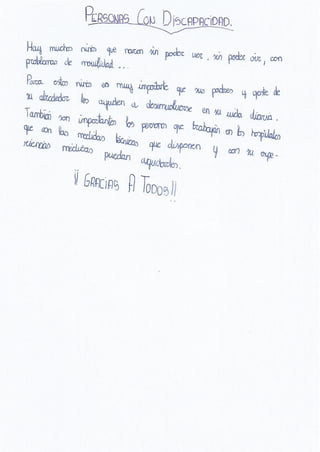 PERSONAS CON DISCAPACIDAD.
Hay muchos niños que nacen sin poder ver, sin poder oir, con
problemas de movilidad...
Para estos niños es muy importante que sus padres y gente de
su alrededor les ayuden a desenvolverse en su vida diaria.
También son importantes las personas que trabajan en los hospitales
que con las medidas técnicas que disponen y con su expe-
riencias médicas puedan ayudarles.
¡¡ GRACIAS A TODOS!!